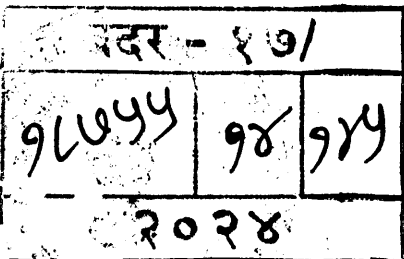 बदर - १७/
१८७५५ १४ १४५
२०२४